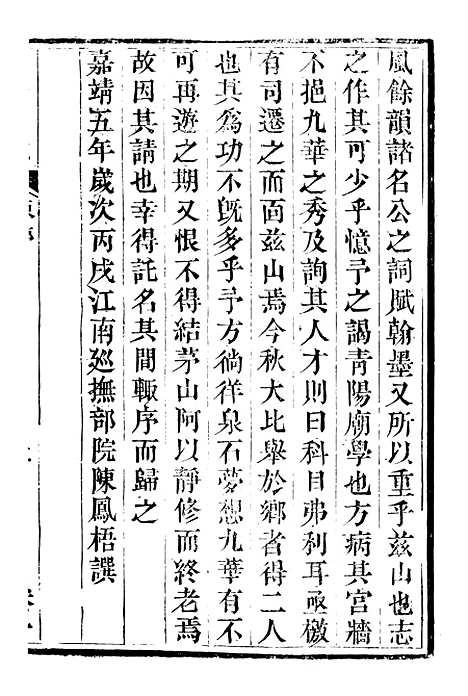 風餘韻諸名公之詞賦翰墨又所以重乎茲山也志
之作其可少乎憶予之謁青陽廟學也方病其宮牆
不挹九華之秀及詢其人才則曰科目弗利耳亟檄
有司遷之而面茲山焉今秋大比舉於鄉者得二人
也其為功不旣多乎予方徜徉泉石夢想九華有不
可再遊之期又恨不得結茅山阿以靜修而終老焉
故因其請也幸得託名其間輙序而歸之
嘉靖五年歲次丙戌江南廵撫部院陳鳳梧譔